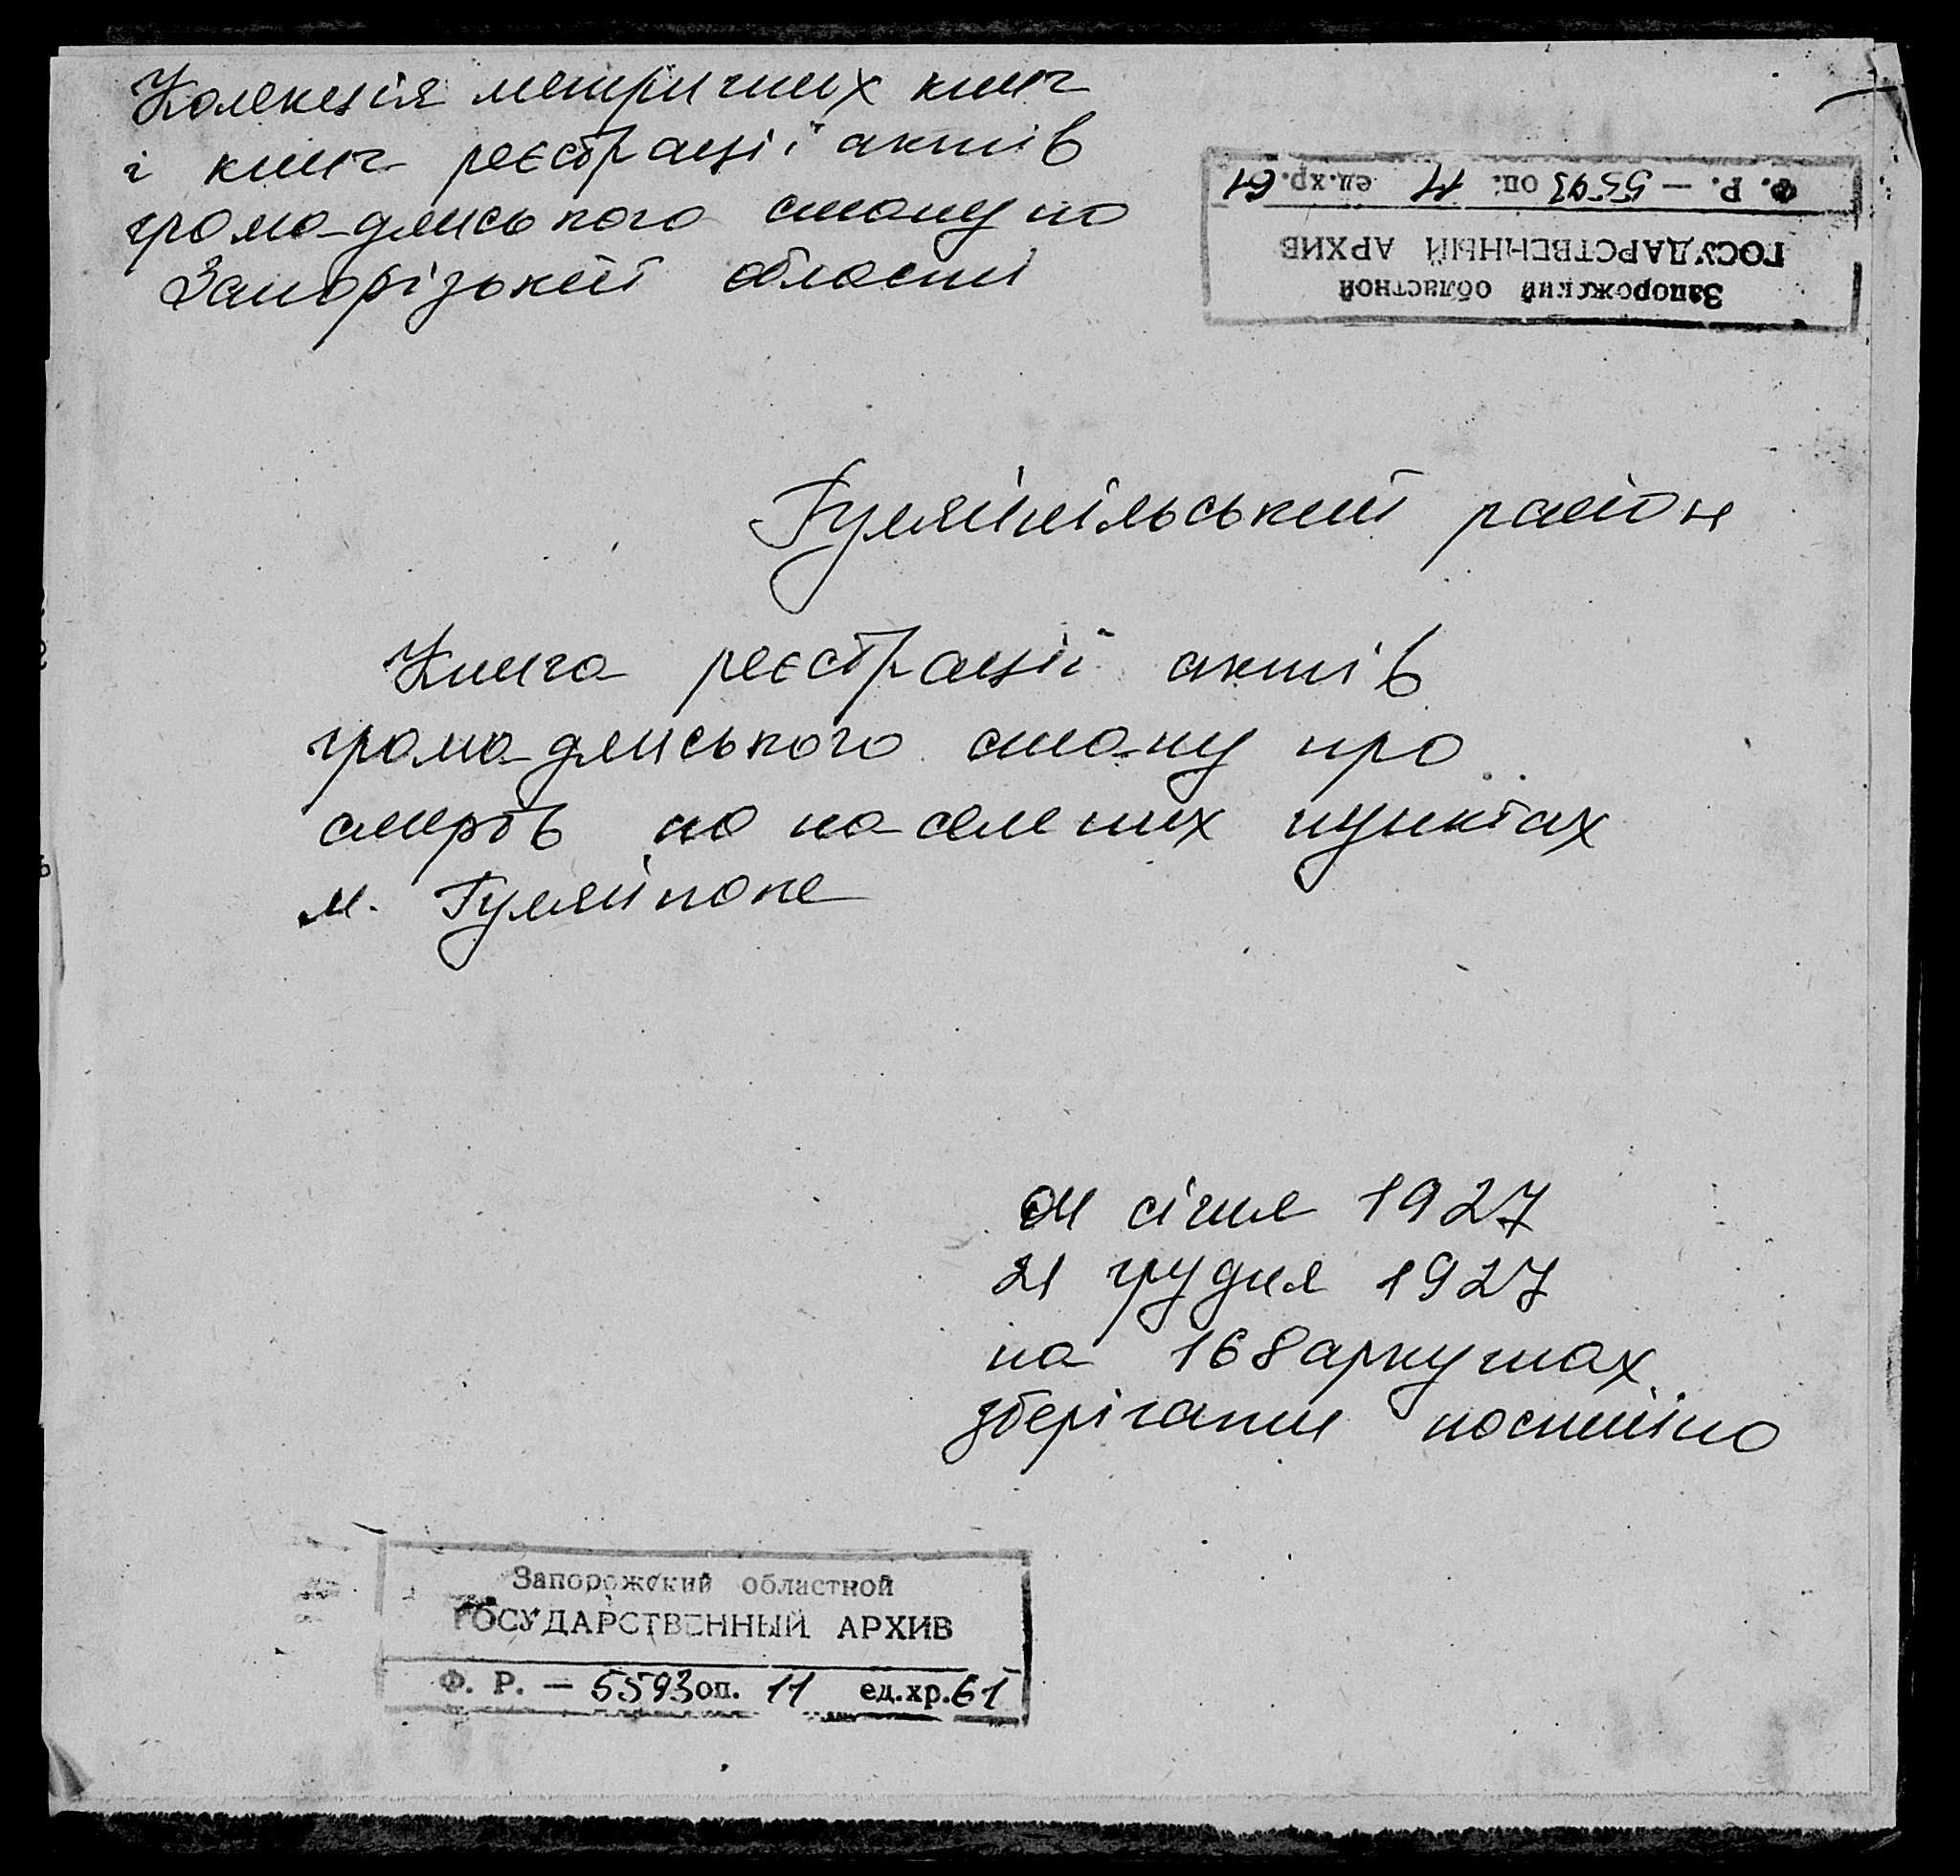 Колекція метричних книг
і книг реєстрації актів
громадянського стану по
Запорізькій області
Ф. Р. — 5593 оп. 11 ед.хр. 61
ГОСУДАРСТВЕННЫЙ АРХИВ
Запорожский областной
Гуляйпільський район
Книга реєстрації актів
громадянського стану про
смерть по населених пунктах
м. Гуляйполе
04 січня 1927
21 грудня 1927
на 168 аркушах
зберігання постійно
Запорожский областной
ГОСУДАРСТВЕННЫЙ АРХИВ
Ф. Р. — 5593 оп. 11 ед.хр. 61